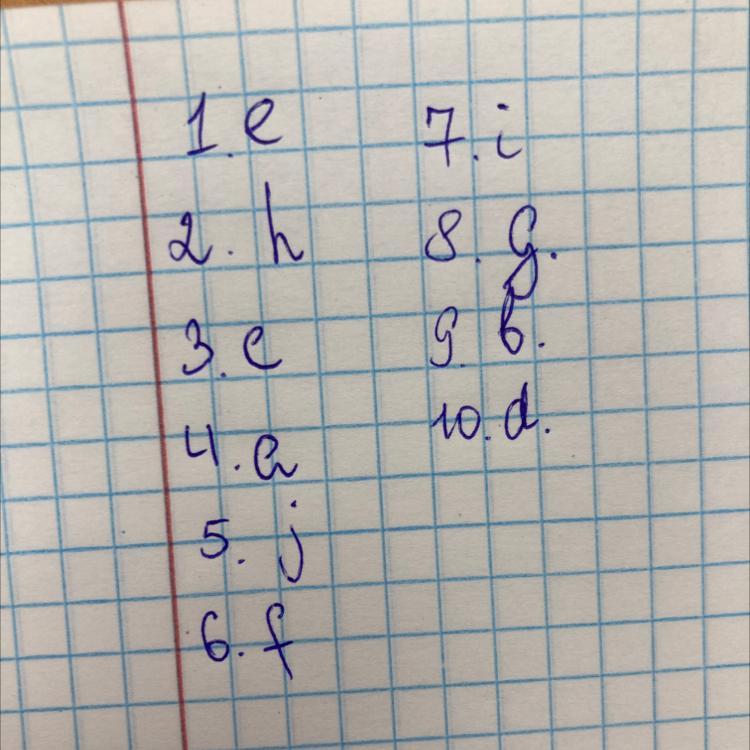 1. e
2. h
3. c
4. a
5. j
6. f
7. i
8. g.
9. b.
10. d.